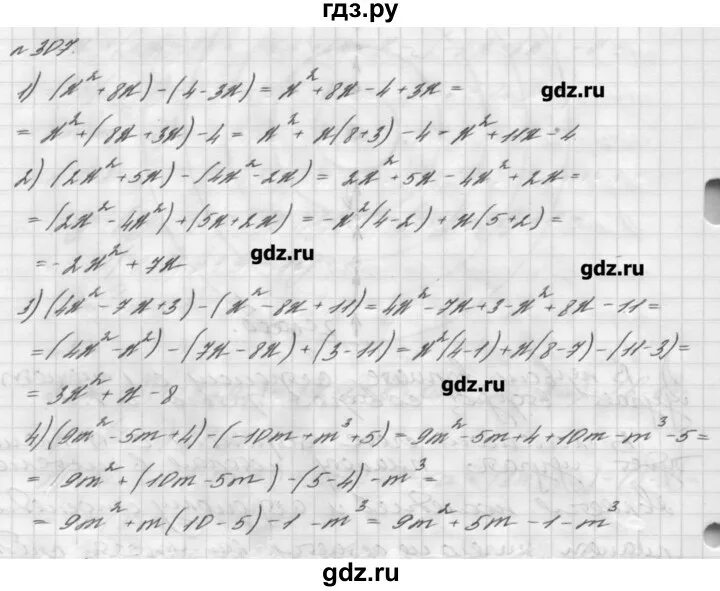 гдз.ру
n 307.
1) (x² + 8x) - (4 - 3x) = x² + 8x - 4 + 3x =
gdz.ru
= x² + (8x + 3x) - 4 = x² + x(8+3) - 4 = x² + 11x - 4
2) (2x² + 5x) - (4x² - 2x) = 2x² + 5x - 4x² + 2x =
= (2x² - 4x²) + (5x + 2x) = -x²(4-2) + x(5+2) =
= -2x² + 7x
gdz.ru
gdz.ru
3) (4x² - 7x + 3) - (x² - 8x + 11) = 4x² - 7x + 3 - x² + 8x - 11 =
= (4x² - x²) - (7x - 8x) + (3 - 11) = x²(4-1) + x(8-7) - (11-3) =
= 3x² + x - 8
gdz.ru
4) (9m² - 5m + 4) - (-10m + m³ + 5) = 9m² - 5m + 4 + 10m - m³ - 5 =
= 9m² + (10m - 5m) - (5-4) - m³ =
= 9m² + m(10 - 5) - 1 - m³ = 9m² + 5m - 1 - m³
gdz.ru